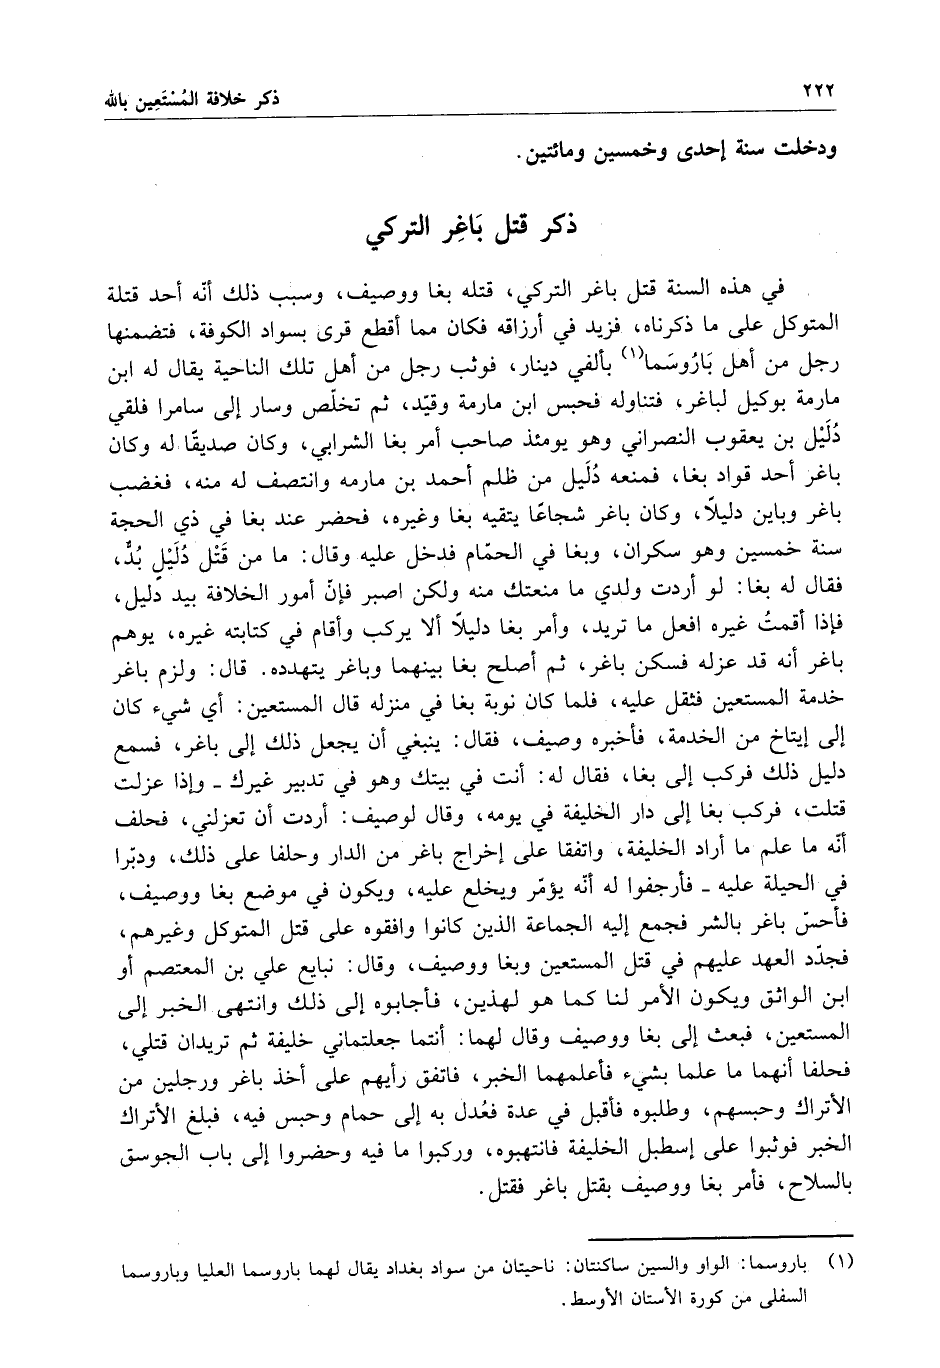 ٢٢٢
ذكر خلافة المُسْتَعِين بالله
ودخلت سنة إحدى وخمسين ومائتين.
ذكر قتل بَاغِر التركي
في هذه السنة قتل باغر التركي، قتله بغا ووصيف، وسبب ذلك أنه أحد قتلة
المتوكل على ما ذكرناه، فزيد في أرزاقه فكان مما أقطع قرى بسواد الكوفة، فتضمنها
رجل من أهل بَارُوسَما(١) بألفي دينار، فوثب رجل من أهل تلك الناحية يقال له ابن
مارمة بوكيل لباغر، فتناوله فحبس ابن مارمة وقيّد، ثم تخلّص وسار إلى سامرا فلقي
دُلَيْل بن يعقوب النصراني وهو يومئذ صاحب أمر بغا الشرابي، وكان صديقًا له وكان
باغر أحد قواد بغا، فمنعه دُلَيل من ظلم أحمد بن مارمه وانتصف له منه، فغضب
باغر وباين دليلاً، وكان باغر شجاعًا يتقيه بغا وغيره، فحضر عند بغا في ذي الحجة
سنة خمسين وهو سكران، وبغا في الحمّام فدخل عليه وقال: ما من قَتْل دُلَيْلٍ بُدٌّ،
فقال له بغا: لو أردت ولدي ما منعتك منه ولكن اصبر فإنّ أمور الخلافة بيد دليل،
فإذا أقمتُ غيره افعل ما تريد، وأمر بغا دليلاً ألا يركب وأقام في كتابته غيره، يوهم
باغر أنه قد عزله فسكن باغر، ثم أصلح بغا بينهما وباغر يتهدده. قال: ولزم باغر
خدمة المستعين فثقل عليه، فلما كان نوبة بغا في منزله قال المستعين: أي شيء كان
إلى إيتاخ من الخدمة، فأخبره وصيف، فقال: ينبغي أن يجعل ذلك إلى باغر، فسمع
دليل ذلك فركب إلى بغا، فقال له: أنت في بيتك وهو في تدبير غيرك ـ وإذا عزلت
قتلت، فركب بغا إلى دار الخليفة في يومه، وقال لوصيف: أردت أن تعزلني، فحلف
أنّه ما علم ما أراد الخليفة، واتفقا على إخراج باغر من الدار وحلفا على ذلك، ودبّرا
في الحيلة عليه ـ فأرجفوا له أنّه يؤمّر ويخلع عليه، ويكون في موضع بغا ووصيف،
فأحسّ باغر بالشر فجمع إليه الجماعة الذين كانوا وافقوه على قتل المتوكل وغيرهم،
فجدّد العهد عليهم في قتل المستعين وبغا ووصيف، وقال: نبايع علي بن المعتصم أو
ابن الواثق ويكون الأمر لنا كما هو لهذين، فأجابوه إلى ذلك وانتهى الخبر إلى
المستعين، فبعث إلى بغا ووصيف وقال لهما: أنتما جعلتماني خليفة ثم تريدان قتلي،
فحلفا أنهما ما علما بشيء فأعلمهما الخبر، فاتفق رأيهم على أخذ باغر ورجلين من
الأتراك وحبسهم، وطلبوه فأقبل في عدة فعُدل به إلى حمام وحبس فيه، فبلغ الأتراك
الخبر فوثبوا على إسطبل الخليفة فانتهبوه، وركبوا ما فيه وحضروا إلى باب الجوسق
بالسلاح، فأمر بغا ووصيف بقتل باغر فقتل.
(١) باروسما: الواو والسين ساكنتان: ناحيتان من سواد بغداد يقال لهما باروسما العليا وباروسما
السفلى من كورة الأستان الأوسط.